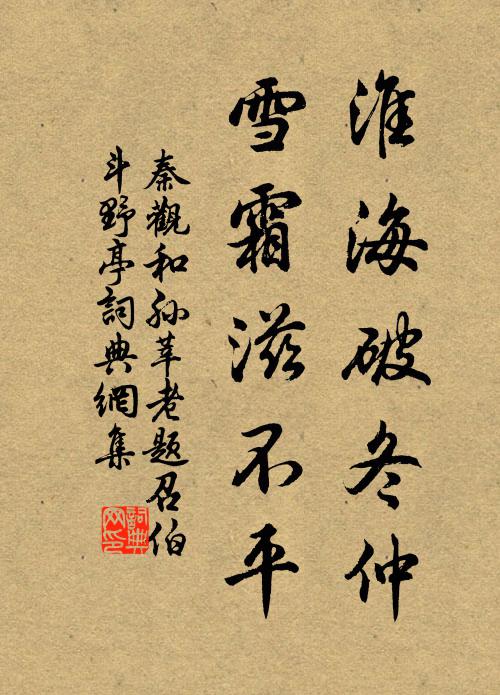 淮海破冬仲
雪霜滋不平
秦觀和孙莘老题召伯
斗野亭詞典網集
詞典网印